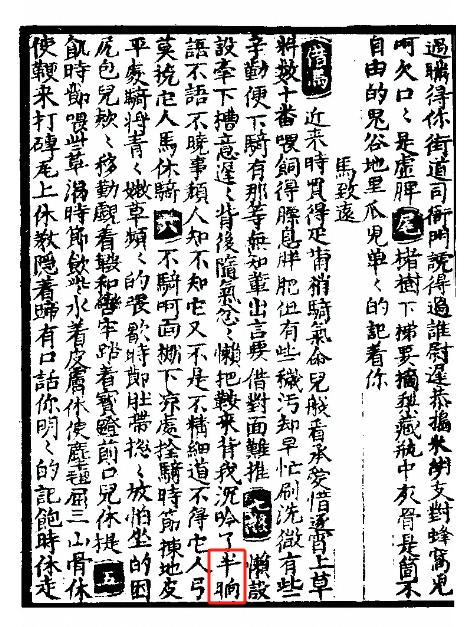 過瞞得你街道司衙門說得過誰尉遲恭搗米胡支對蜂窩兒
呵欠口々是虛脾 尾 楮樹下梯要摘梨藏瓶中灰骨是箇不
自由的鬼谷地里瓜兒单々的記着你
馬致遠
借馬 近来時買得疋蒲梢騎氣命兒般看承愛惜逐宵上草
料数十番喂飼得膘息胖肥但有些穢污却早忙刷洗微有些
辛勤便下騎有那等無知輩出言要借對面難推 七煞 懶設
設牽下槽意遲々背後隨氣忿々懶把鞍来背我沉吟了半晌
語不語不曉事頽人知不知它又不是不精細道不得它人弓
莫挽它人馬休騎 六 不騎呵西棚下凉處拴騎時節揀地皮
平處騎將青々嫩草頻々的喂歇時節肚帶搃々放怕坐的困
尻包兒欵々移勤覷着鞍和轡牢踏着寳鐙前口兒休提 五
飢時節喂些草渴時節飲些水着皮膚休使麄氊屈三山骨休
使鞭来打磚瓦上休教隱着蹄有口話你明々的記飽時休走